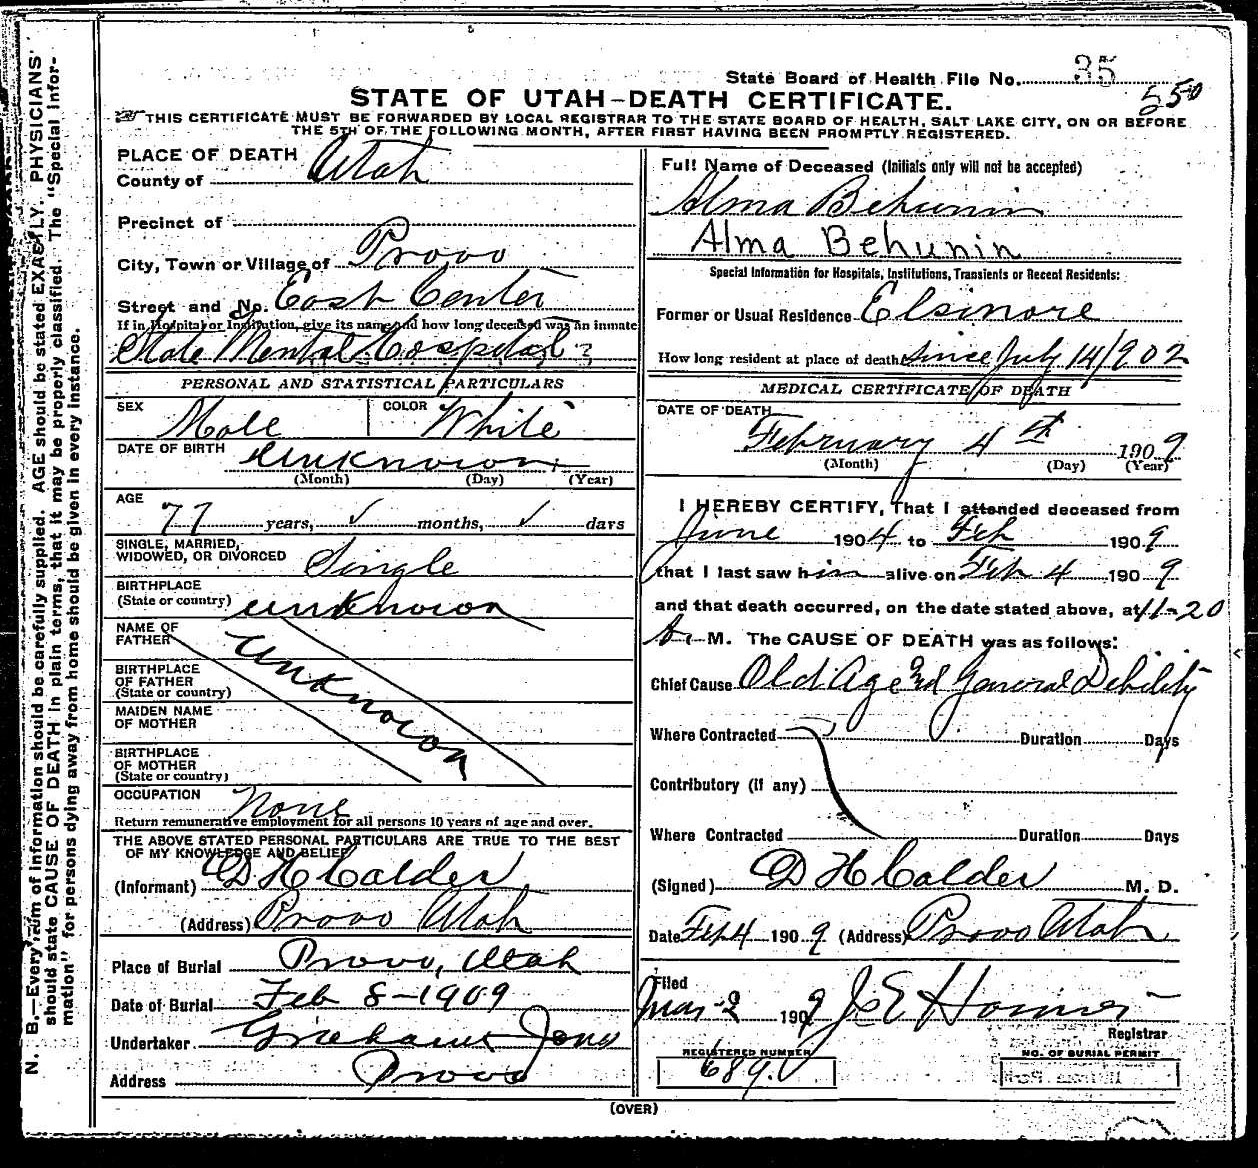 State Board of Health File No. 35
550
STATE OF UTAH-DEATH CERTIFICATE.
THIS CERTIFICATE MUST BE FORWARDED BY LOCAL REGISTRAR TO THE STATE BOARD OF HEALTH, SALT LAKE CITY, ON OR BEFORE
THE 5TH OF THE FOLLOWING MONTH, AFTER FIRST HAVING BEEN PROMPTLY REGISTERED.
PLACE OF DEATH
County of Utah
Precinct of
City, Town or Village of Provo
Street and No. East Center
If in Hospital or Institution, give its name and how long deceased was an inmate
State Mental Hospital
PERSONAL AND STATISTICAL PARTICULARS
SEX Male COLOR White
DATE OF BIRTH Unknown
(Month) (Day) (Year)
AGE 77 years, ✓ months, ✓ days
SINGLE, MARRIED,
WIDOWED, OR DIVORCED Single
BIRTHPLACE
(State or country) unknown
NAME OF
FATHER
BIRTHPLACE
OF FATHER
(State or country)
MAIDEN NAME
OF MOTHER
BIRTHPLACE
OF MOTHER
(State or country)
Unknown
OCCUPATION None
Return remunerative employment for all persons 10 years of age and over.
THE ABOVE STATED PERSONAL PARTICULARS ARE TRUE TO THE BEST
OF MY KNOWLEDGE AND BELIEF
(Informant) D H Calder
(Address) Provo Utah
Place of Burial Provo, Utah
Date of Burial Feb 8-1909
Undertaker Jones
Address Provo
Full Name of Deceased (Initials only will not be accepted)
Alma Behunin
Alma Behunin
Special Information for Hospitals, Institutions, Transients or Recent Residents:
Former or Usual Residence Elsinore
How long resident at place of death since July 14/902
MEDICAL CERTIFICATE OF DEATH
DATE OF DEATH
February 4th 1909
(Month) (Day) (Year)
I HEREBY CERTIFY, That I attended deceased from
June 1904 to Feb 1909
that I last saw him alive on Feb 4 1909
and that death occurred, on the date stated above, at 11-20
M. The CAUSE OF DEATH was as follows:
Chief Cause Old Age and General Debility
Where Contracted Duration Days
Contributory (if any)
Where Contracted Duration Days
(Signed) D H Calder M. D.
Date Feb 4 1909 (Address) Provo Utah
Filed
Mar-2 1909 J E Horner
Registrar
REGISTERED NUMBER
689.
NO. OF BURIAL PERMIT
(OVER)
N. B.—Every item of information should be carefully supplied. AGE should be stated EXACTLY. PHYSICIANS
should state CAUSE OF DEATH in plain terms, that it may be properly classified. The "Special Infor-
mation" for persons dying away from home should be given in every instance.